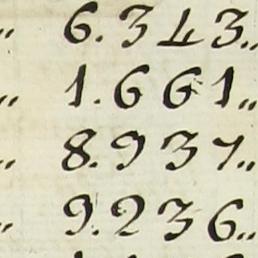 „ 6.343„
„ 1.661„
„ 8.937„
„ 9.236„